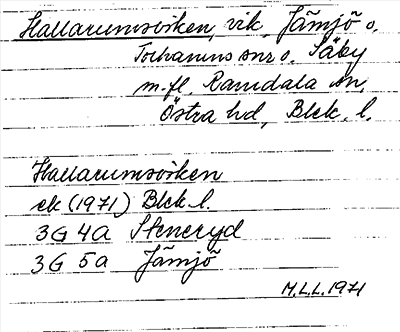 Hallarumsviken, vik, Jämjö o.
Torhamns snr o. Säby
m.fl. Ramdala sn,
Östra hd, Blek. l.
Hallarumsviken
ek (1971) Blek l.
3G 4a Steneryd
3G 5a Jämjö
M.L.L. 1971